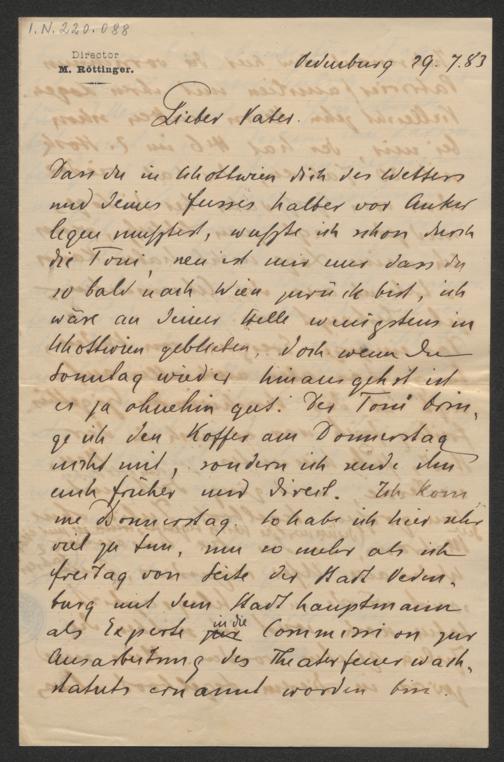 I.N. 220.088
Director
M. Röttinger.
Oedenburg 29. 7. 83
Lieber Vater.
Dass du in Schottwien dich des Wetters
und deines Fusses halber vor Anker
legen musstest, wusste ich schon durch
die Toni, neu ist mir nur dass du
so bald nach Wien zurück bist, ich
wäre an deiner Stelle wenigstens in
Schottwien geblieben, doch wenn du
Sonntag wieder hinausgehst ist
es ja ohnehin gut. Der Toni brin-
ge ich den Koffer am Donnerstag
nicht mit, sondern ich sende ihn
euch früher und direct. Ich kom̅
me Donnerstag. So habe ich hier sehr
viel zu tun, um so mehr als ich
freitag von Seite der Stadt Oeden-
burg mit dem Stadthauptmann
als Experte in die Commission zur
Ausarbeitung des Theaterfeuerwach-
statuts ernannt worden bin.